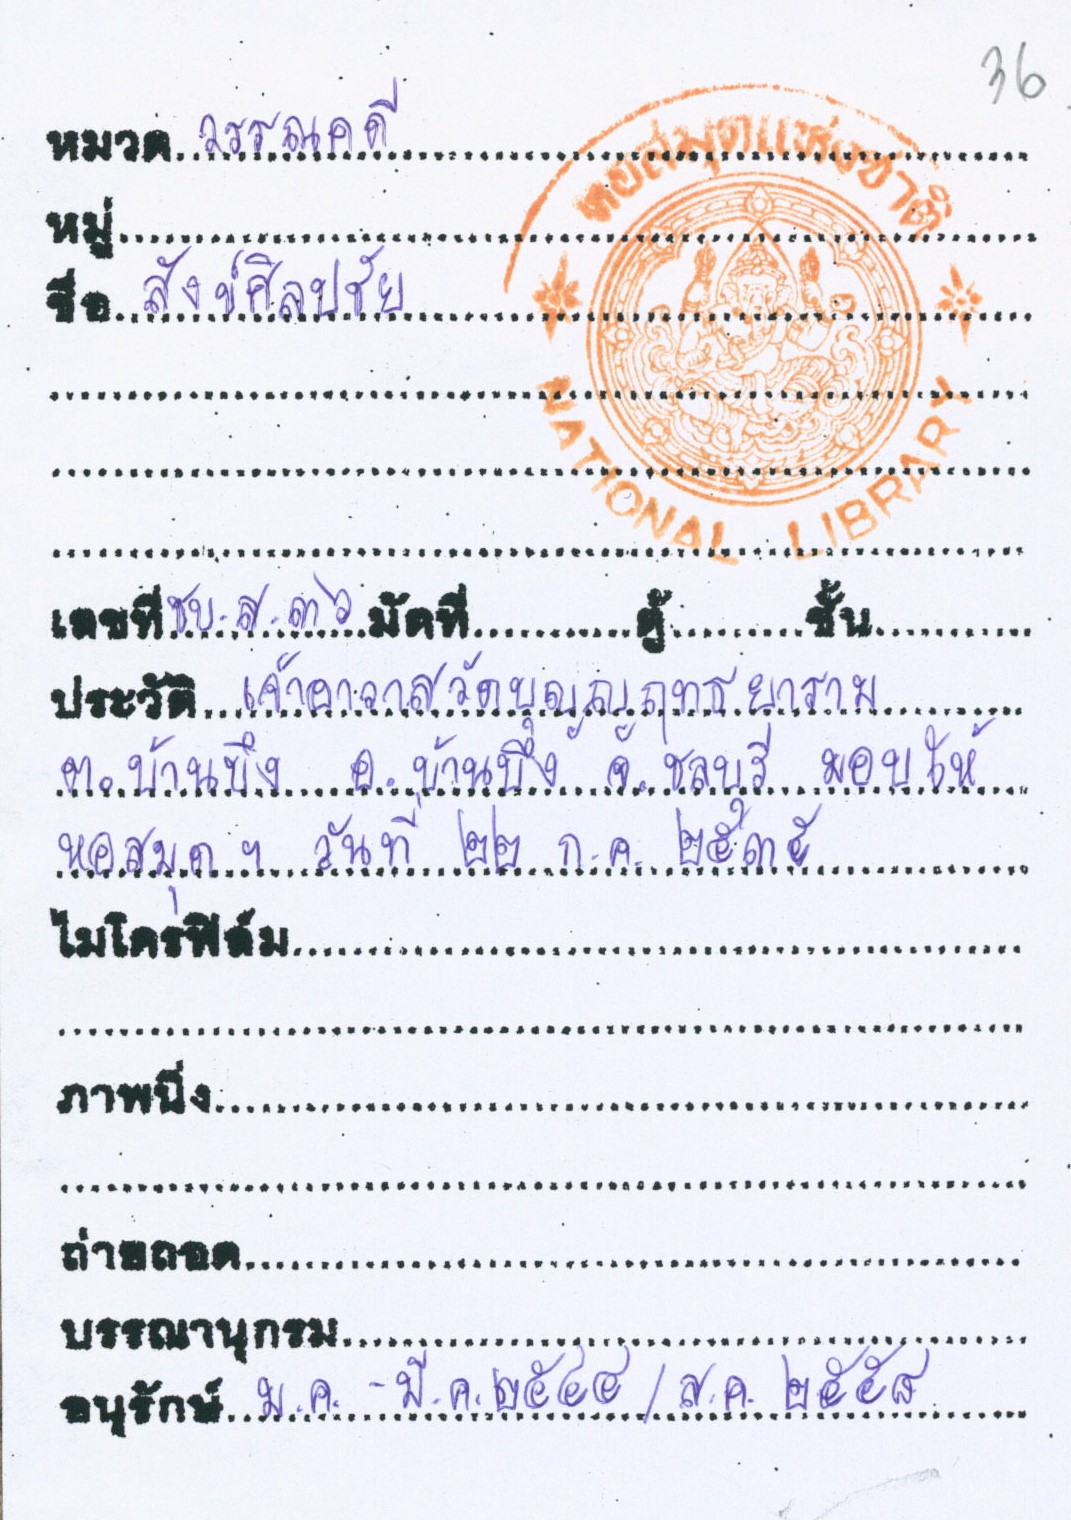 36
หอสมุดแห่งชาติ
NATIONAL LIBRARY
หมวด วรรณคดี
หมู่
ชื่อ สังข์ศิลปชัย
เลขที่ ชบ.ส.๓๖ มัดที่ ตู้ ชั้น
ประวัติ เจ้าอาวาสวัดบุญญฤทธยาราม
ต.บ้านบึง อ.บ้านบึง จ.ชลบุรี มอบให้
หอสมุดฯ วันที่ ๒๒ ก.ค. ๒๕๓๕
ไมโครฟิล์ม
ภาพนิ่ง
ถ่ายถอด
บรรณานุกรม
อนุรักษ์ ม.ค. - มี.ค. ๒๕๔๔ / ส.ค. ๒๕๕๘